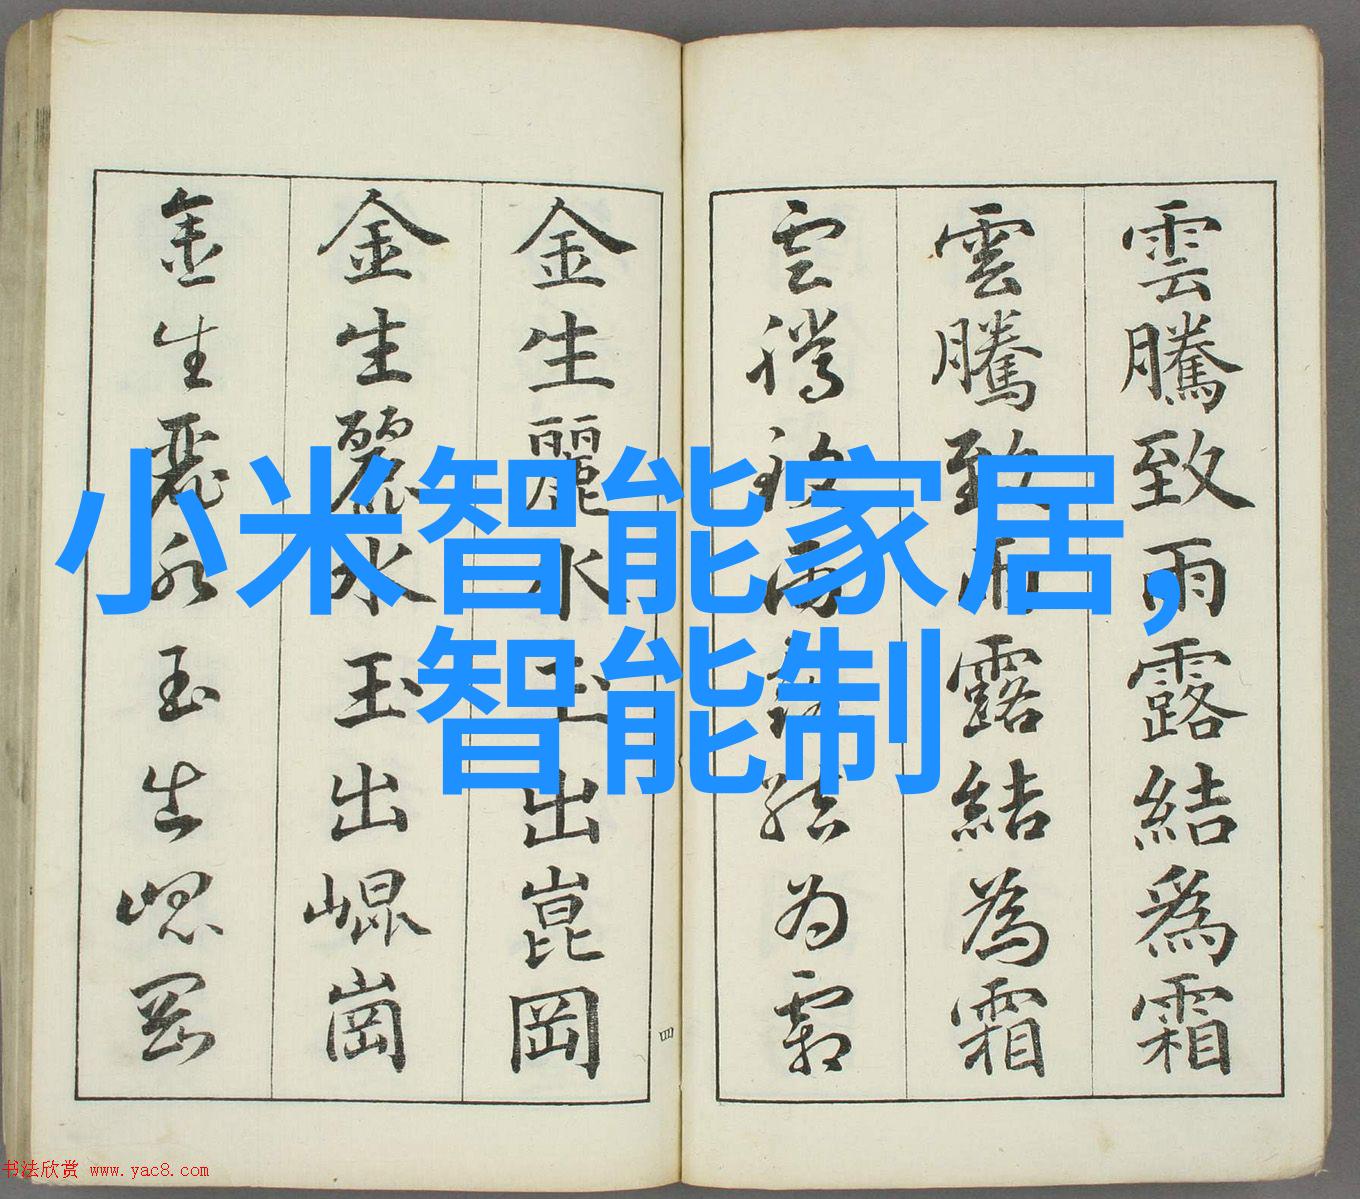 小米智能家居,
智能制
雲騰致雨露結爲霜
雲騰致雨露結為霜
雲騰致雨露結为霜
四
金生麗水玉出崑岡
金生麗水玉出崐崗
金生麗水玉出崐岡
书法欣赏 www.yac8.com